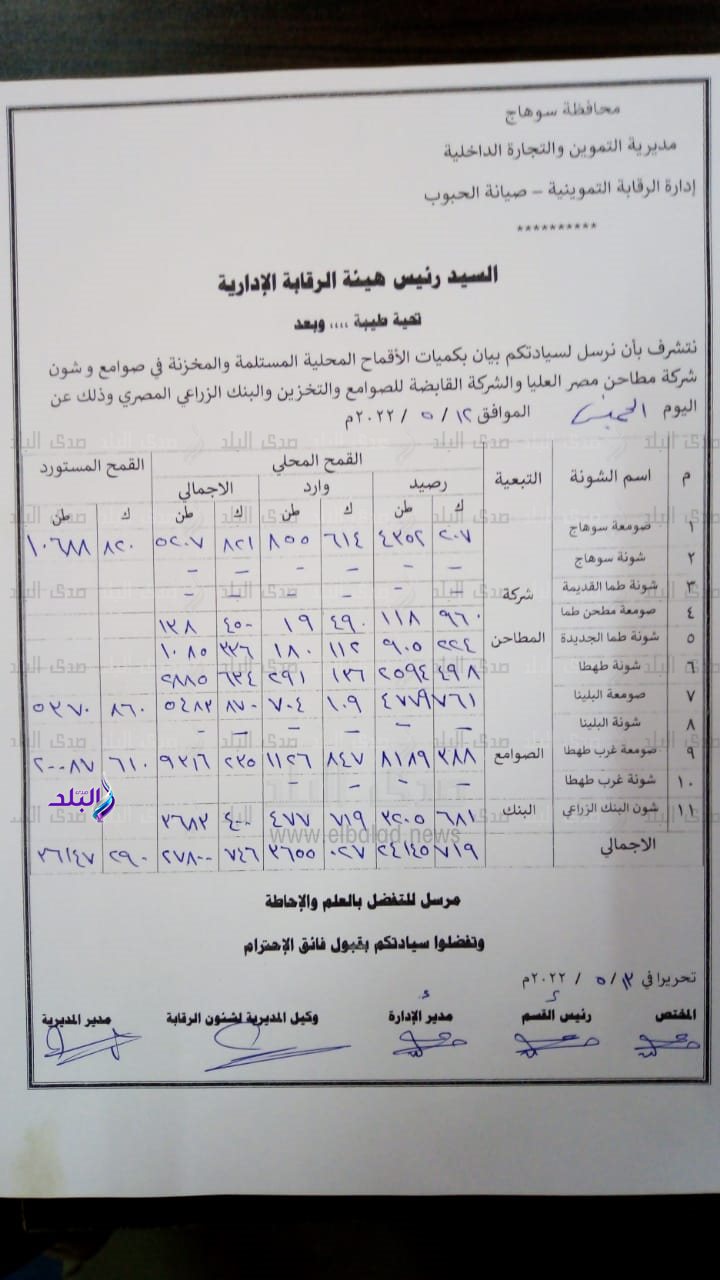 محافظة سوهاج
مديرية التموين والتجارة الداخلية
إدارة الرقابة التموينية – صيانة الحبوب
**********
السيد رئيس هيئة الرقابة الإدارية
تحية طيبة .... وبعد
نتشرف بأن نرسل لسيادتكم بيان بكميات الأقماح المحلية المستلمة والمخزنة في صوامع و شون
شركة مطاحن مصر العليا والشركة القابضة للصوامع والتخزين والبنك الزراعي المصري وذلك عن
اليوم الخميس الموافق ١٢ / ٥ / ٢٠٢٢م
م اسم الشونة التبعية القمح المحلي القمح المستورد
رصيد وارد الاجمالي
ك طن ك طن ك طن ك طن
١ صومعة سوهاج ٢٠٧ ٤٣٥٢ ٦١٤ ٨٥٥ ٨٢١ ٥٢٠٧ ٨٢٠ ١٠٦٨٨
٢ شونة سوهاج – – – – – –
٣ شونة طما القديمة شركة – – – – – –
٤ صومعة مطحن طما ٩٦٠ ١١٨ ٤٩٠ ١٩ ٤٥٠ ١٣٨
٥ شونة طما الجديدة المطاحن ٢٢٤ ٩٠٥ ١١٢ ١٨٠ ٣٣٦ ١٠٨٥
٦ شونة طهطا ٤٩٨ ٢٥٩٤ ١٣٦ ٢٩١ ٦٣٤ ٢٨٨٥
٧ صومعة البلينا ٧٦١ ٤٧٧٩ ١٠٩ ٧٠٤ ٨٧٠ ٥٤٨٣ ٨٦٠ ٥٣٧٠
٨ شونة البلينا – – – – – –
٩ صومعة غرب طهطا الصوامع ٣٨٨ ٨١٨٩ ٨٤٧ ١١٢٦ ٢٣٥ ٩٣١٦ ٦١٠ ٢٠٠٨٧
١٠ شونة غرب طهطا – – – –
١١ شون البنك الزراعي البنك ٦٨١ ٣٢٠٥ ٧١٩ ٤٧٧ ٤٠٠ ٣٦٨٣
الاجمالي ٧١٩ ٢٤١٤٥ ٠٢٧ ٣٦٥٥ ٧٤٦ ٢٧٨٠٠ ٢٩٠ ٣٦١٤٧
صدى البلد
www.elbalad.news
مرسل للتفضل بالعلم والإحاطة
وتفضلوا سيادتكم بقبول فائق الإحترام
تحريرا في ١٢ / ٥ / ٢٠٢٢م
المختص رئيس القسم مدير الإدارة وكيل المديرية لشئون الرقابة مدير المديرية